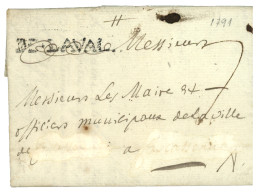 1791
DE LAVAL Messieurs
7
Messieurs Les Maire et
officiers municipaux de la ville
de
a